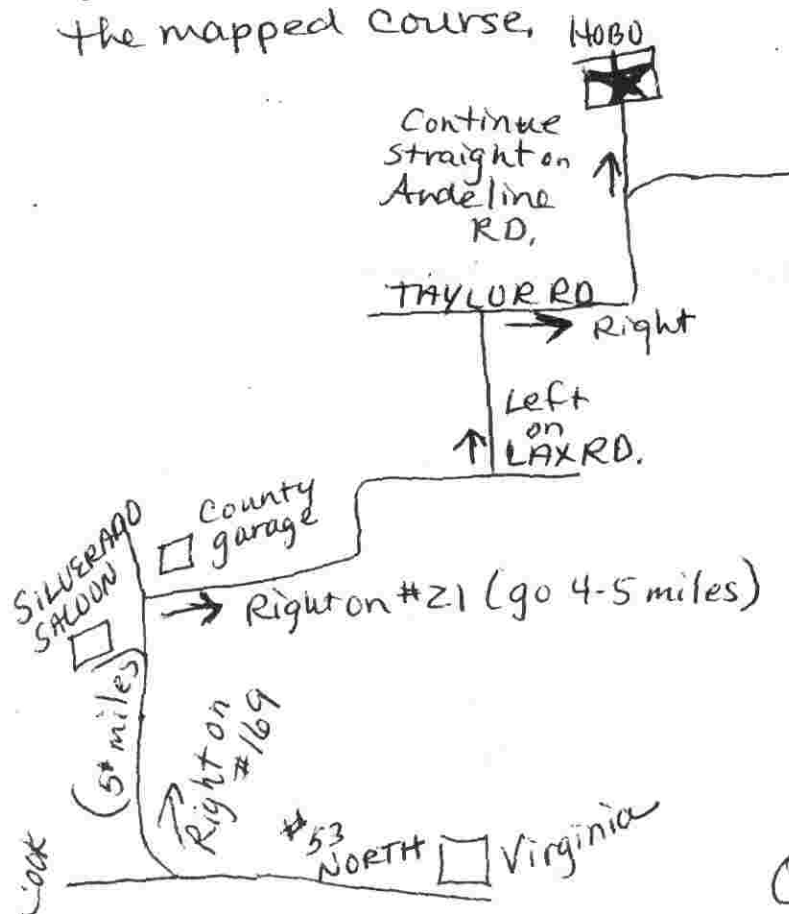 the mapped course.
HOBO
Continue
straight on
Andeline
RD.
TAYLOR RD
Right
Left
on
LAX RD.
County
garage
SILVERADO
SALOON
Right on #21 (go 4-5 miles)
(5+ miles)
Right on
#169
#53
NORTH
Virginia
COOK